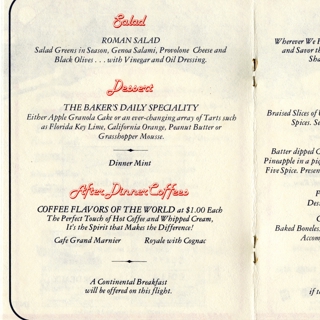 Salad
ROMAN SALAD
Salad Greens in Season, Genoa Salami, Provolone Cheese and
Black Olives . . . with Vinegar and Oil Dressing.
Dessert
THE BAKER'S DAILY SPECIALITY
Either Apple Granola Cake or an ever-changing array of Tarts such
as Florida Key Lime, California Orange, Peanut Butter or
Grasshopper Mousse.
Dinner Mint
After Dinner Coffees
COFFEE FLAVORS OF THE WORLD at $1.00 Each
The Perfect Touch of Hot Coffee and Whipped Cream,
It's the Spirit that Makes the Difference!
Cafe Grand Marnier Royale with Cognac
A Continental Breakfast
will be offered on this flight.
Wherever We
and Savor
Braised Slices of
Spices.
Batter dipped
Pineapple in a
Five Spice. Presen
Baked Boneless
Accom
if